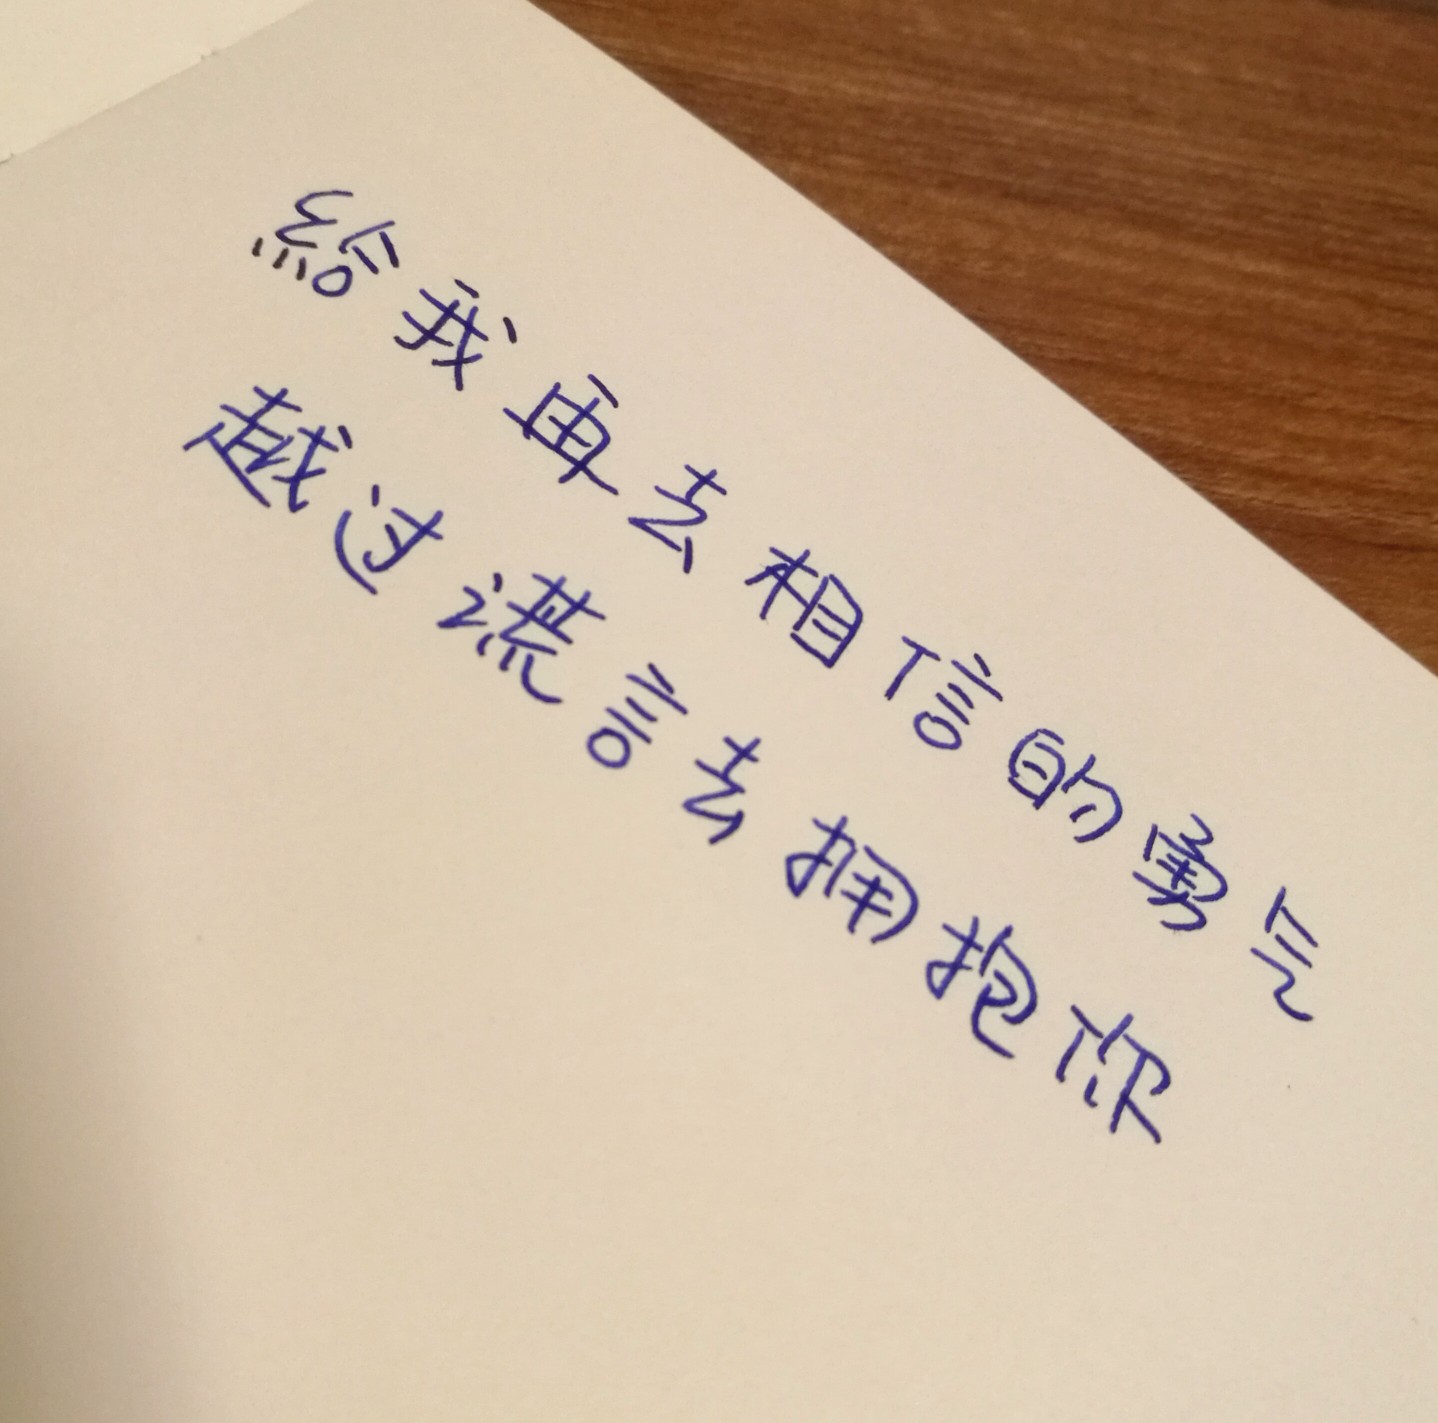 給我再去相信的勇气
越过谎言去拥抱你